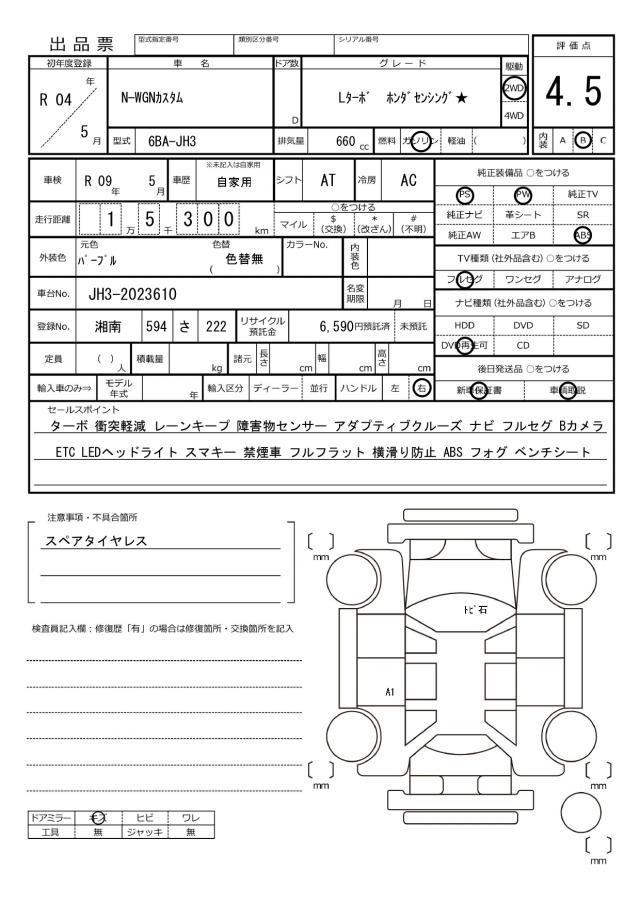 出品票
型式指定番号 類別区分番号 シリアル番号
評価点
4.5
初年度登録 車名 ドア数 グレード 駆動
R 04 年 5 月
N-WGNカスタム
D
Lターボ ホンダセンシング★
2WD
4WD
型式 6BA-JH3 排気量 660 cc 燃料 ガソリン 軽油 ( )
内装 A B C
車検 R 09 年 5 月 車歴 ※未記入は自家用 自家用 シフト AT 冷房 AC
走行距離 1 万 5 千 3 0 0 km
○をつける
マイル $ (交換) * (改ざん) # (不明)
外装色 元色 パープル 色替 ( 色替無 ) カラーNo. 内装色
車台No. JH3-2023610 名変期限 月 日
登録No. 湘南 594 さ 222 リサイクル預託金 6,590円預託済 未預託
定員 ( ) 人 積載量 kg 諸元 長さ cm 幅 cm 高さ cm
輸入車のみ⇒ モデル年式 年 輸入区分 ディーラー 並行 ハンドル 左 右
純正装備品 ○をつける
PS PW 純正TV
純正ナビ 革シート SR
純正AW エアB ABS
TV種類(社外品含む)○をつける
フルセグ ワンセグ アナログ
ナビ種類(社外品含む)○をつける
HDD DVD SD
DVD再生可 CD
後日発送品 ○をつける
新車保証書 車輌取説
セールスポイント
ターボ 衝突軽減 レーンキープ 障害物センサー アダプティブクルーズ ナビ フルセグ Bカメラ
ETC LEDヘッドライト スマキー 禁煙車 フルフラット 横滑り防止 ABS フォグ ベンチシート
注意事項・不具合箇所
スペアタイヤレス
検査員記入欄:修復歴「有」の場合は修復箇所・交換箇所を記入
ドアミラー キズ ヒビ ワレ
工具 無 ジャッキ 無
〔 〕 mm
〔 〕 mm
トビ石
A1
〔 〕 mm
〔 〕 mm
〔 〕 mm